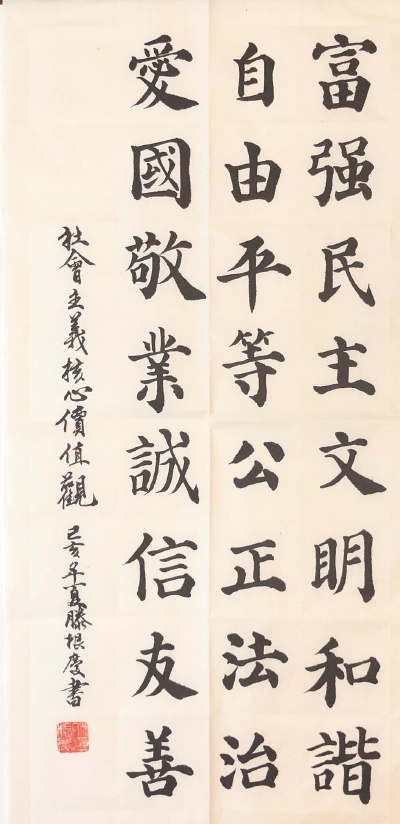 富强民主文明和諧
自由平等公正法治
愛國敬業誠信友善
社會主義核心價值觀
己亥年夏滕根慶書